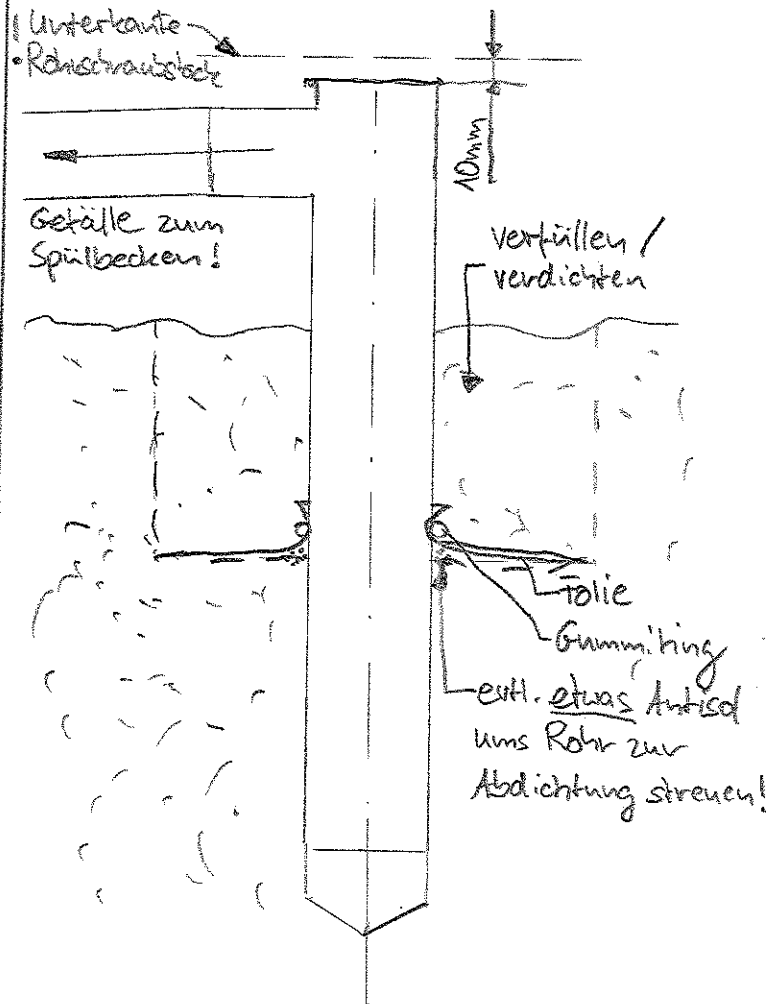 ! Unterkante
Rohrschraubstock
10mm
Gefälle zum
Spülbecken!
verfüllen /
verdichten
Folie
Gummiring
evtl. etwas Antisol
ums Rohr zur
Abdichtung streuen!